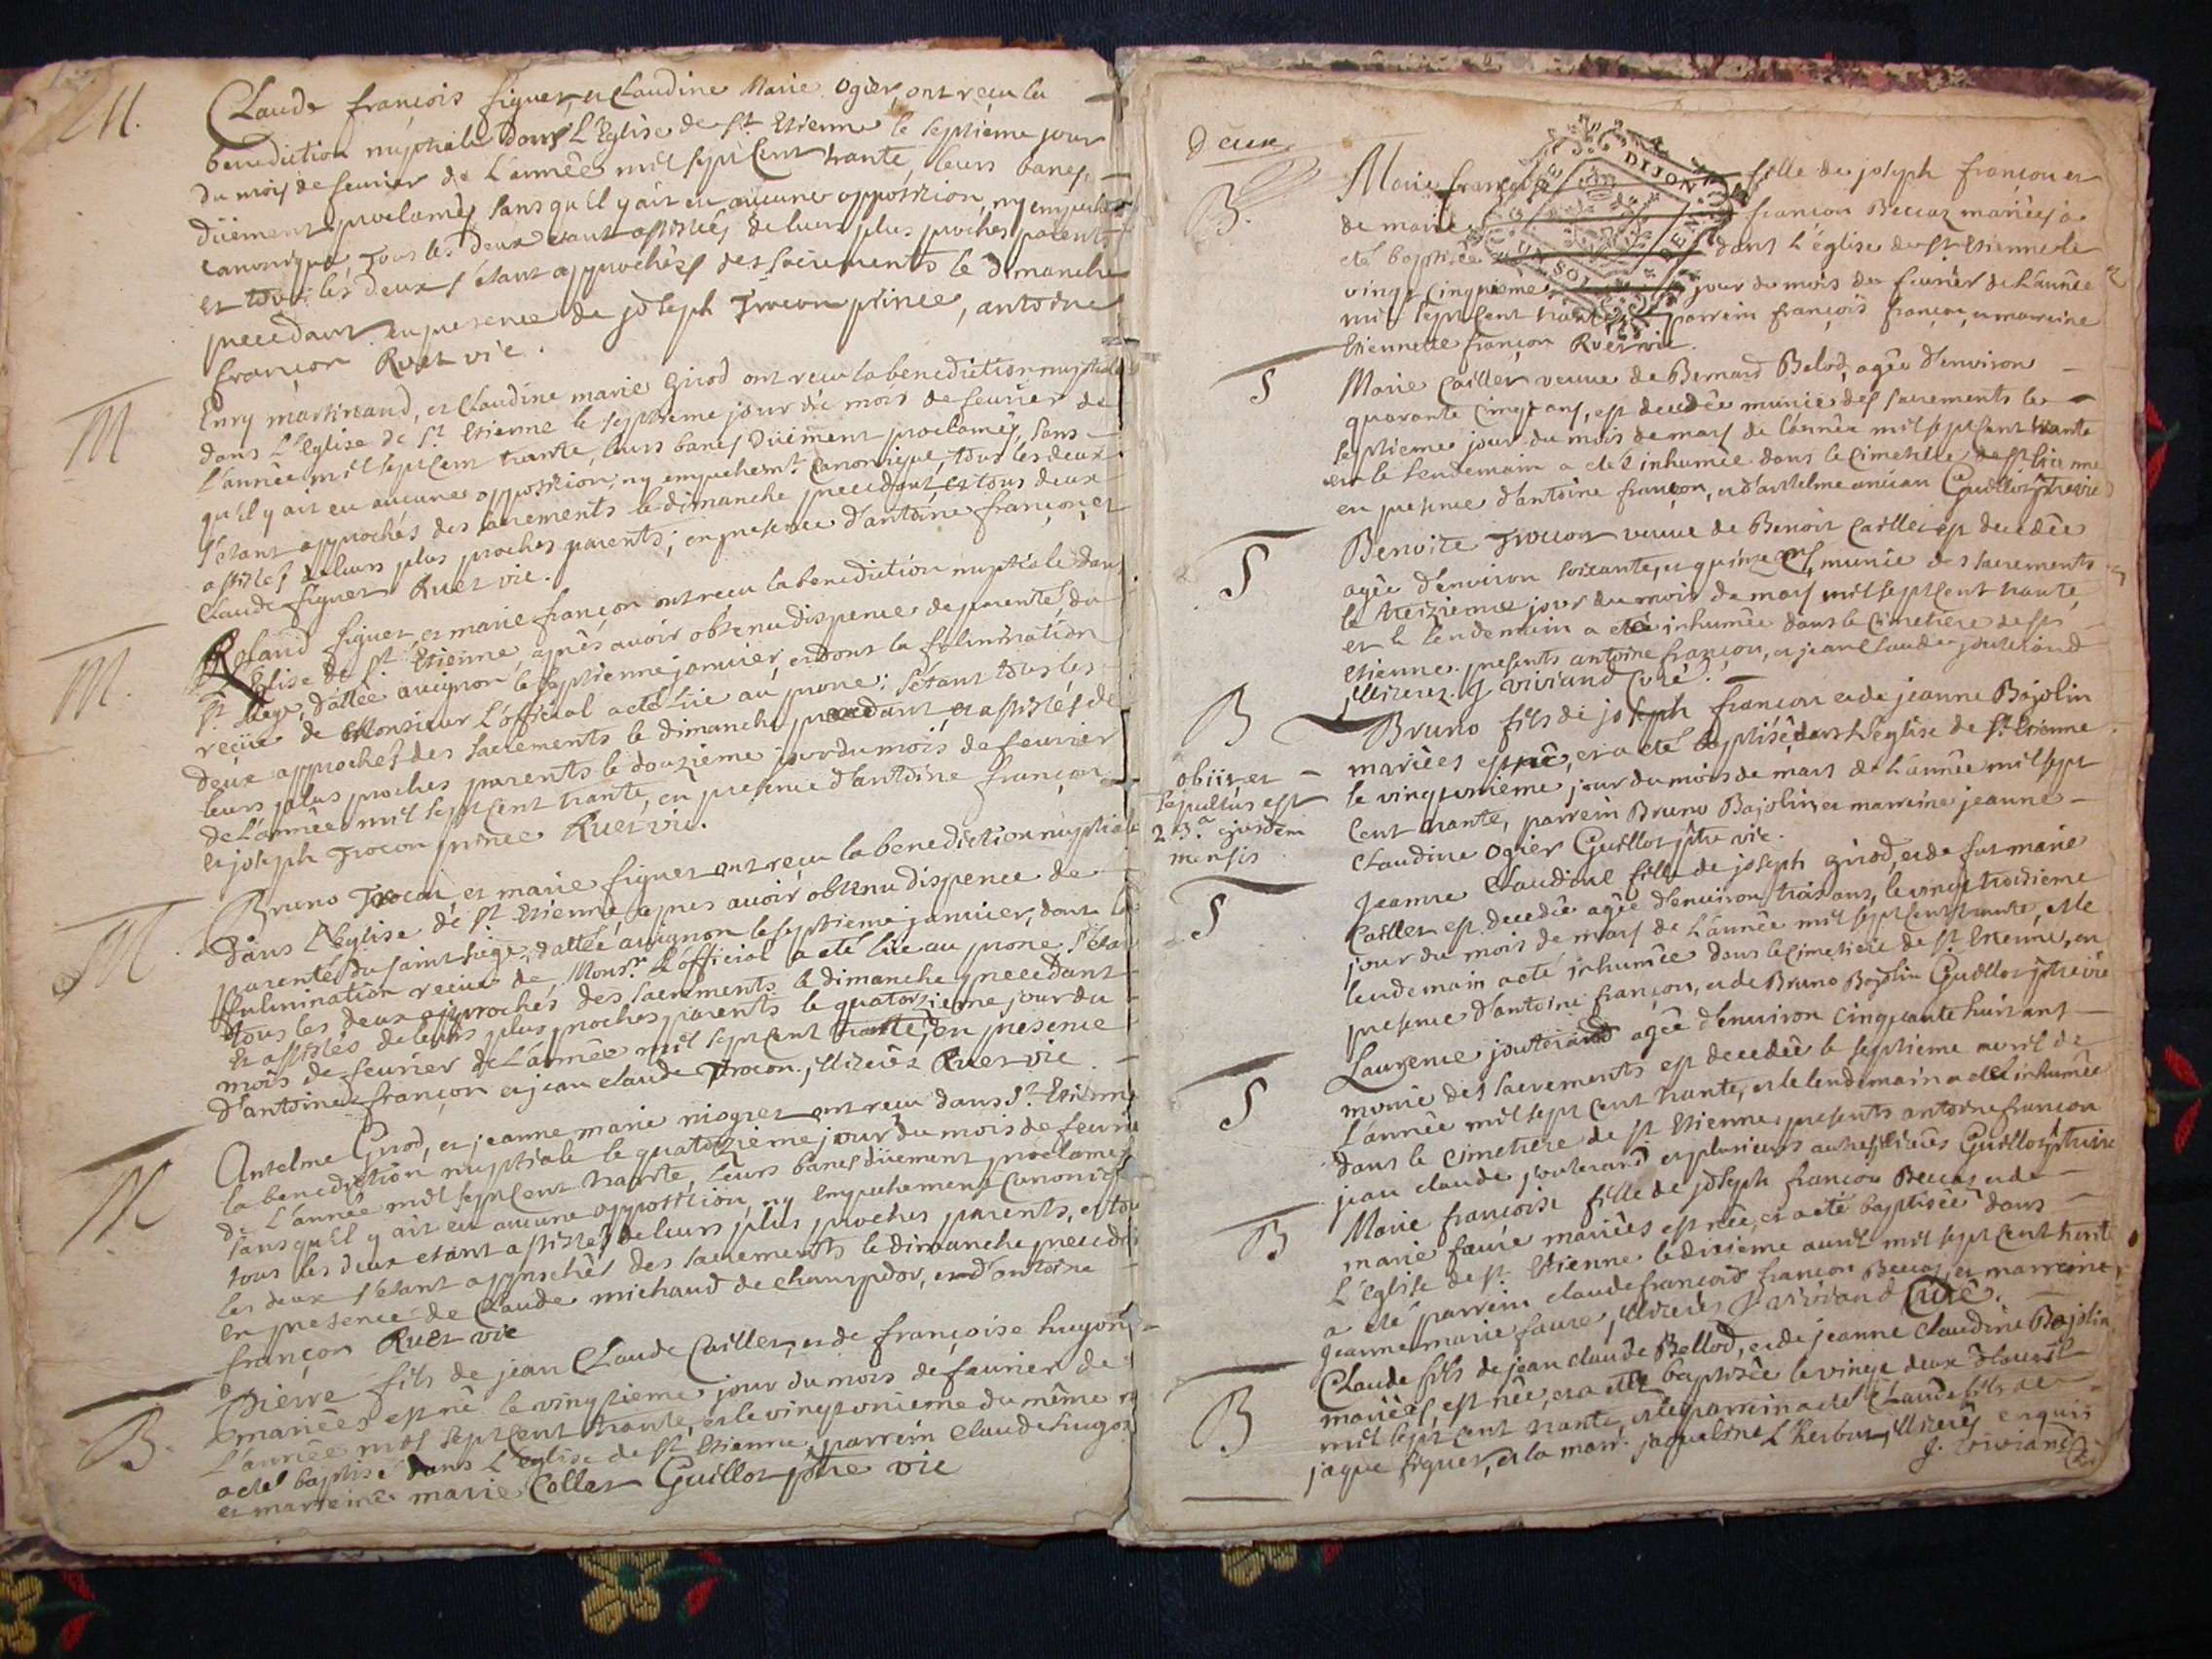 M.
Claude françois figuet, et Claudine Marie Ogier, ont reçu la
benediction nuptiale dans L'Eglise de St. Etienne le septieme jour
du mois de feurier de L'année mil sept Cent trante, leurs bancs,
düement proclamés sans qu'il y ait eu aucune opposition, ny empeche
canonique, Tous les deux etant assistés de leurs plus proches parents
et tous les deux s'étant approchés des sacrements le dimanche
precedant en presence de joseph Trocon prince, antoine
françon Ruet vic.
M
Enry martinand, et Claudine marie Girod ont recu la benediction nuptiale
dans L'Eglise de St. Etienne le septieme jour du mois de feurier de
L'année mil sept Cent trante, leurs bancs düement proclamés, sans
qu'il y ait eu aucune opposition, ny empechemt. Canonique, tous les deux
s'étant approchés des sacrements le dimanche precedant, et tous deux
assistés de leurs plus proches parents; en presence d'antoine françon et
Claude figuet Ruet vic.
M.
Roland figuet, et marie françon ont recu la benediction nuptiale dans
L'Eglise de St. Etienne, apnès auoir obtenu dispence de parenté, du
St. siege, dattée auignon le septieme januier, et dont la fulmination
reçüe de Monsieur L'official a eté lüe au prone: s'étant tous les
deux approchés des sacrements le dimanche precedant, et assistés de
leurs plus proches parents le douzieme jour du mois de feurier
de L'année mil sept Cent trante, en presence d'antoine françon
et joseph Trocon prince Ruet vic.
M.
Bruno Trocon, et marie figuet ont reçu la benediction nuptiale
dans L'Eglise de St. Etienne, apnes auoir obtenu dispence de
parenté du saint siege, dattée auignon le septieme januier, dont la
fulmination recüe de, Monsr. L'official a eté lüe au prone s'étant
tous les deux approchés des sacrements le dimanche precedant
et assistés de leurs plus proches parents le quatorzieme jour du
mois de feurier de L'année mil sept Cent trante, en presence
d'antoine françon et jean claude Trocon, illiterés Ruet vic
M
Antelme Girod, et jeanne marie niogret ont recu dans St. Etienne
la benediction nuptiale le quatorzieme jour du mois de feurier
de L'année mil sept Cent trante, Leurs bancs düement proclamés
sans qu'il y ait eu aucune opposition, ny Empechement Canonique
tous les deux etant assistés de leurs plus proches parents, et tous
les deux s'étant approchés des sacrements le dimanche precedant
en presence de Claude michaud de champdor, et d'antoine
françon Ruet vic
B.
Pierre fils de jean Claude Caillet, et de françoise hugon
mariées est né le vingtieme jour du mois de feurier de
L'année mil sept Cent trante, et le vingt unieme du même
a eté baptisé dans L'Eglise de St. Etienne, parrein Claude hugon
et marreine marie Collet Guillot ptre vic
deux
B.
Marie françoise fille de joseph françon et
de marie françon Beccaz mariées a
eté baptisée dans L'église de St. Etienne le
vingt cinquieme jour du mois de feurier de L'année
mil sept Cent trante parrein françois françon, et marreine
Etiennette françon Ruet vic.
S
Marie Caillet veuue de Bernard Belod, agée d'enuiron
quarante cinq ans, est decedée munie des sacrements le
septieme jour du mois de mars de L'année mil sept Cent trante
et le lendemain a eté inhumée dans le cimetiere de St. Etienne
en presence d'antoine françon, et d'antelme ancian Guillot ptre vic
S
Benoite Trocon veuue de Benoit Caillet est decedée
agée d'enuiron soixante, et quinze ans, munie des sacrements
le treizieme jour du mois de mars mil sept Cent trante,
et le lendemain a eté inhumée dans le cimetiere de St.
Etienne. presents antoine françon, et jean Claude jouterand
illiterez. J viviand Curé.
B
Bruno fils de joseph françon et de jeanne Bajolin
mariées est né, et a eté baptisé dans L'église de St. Etienne
le vingt unième jour du mois de mars de L'année mil sept
Cent trante, parrein Bruno Bajolin, et marreine jeanne
Claudine Ogier Guillot ptre vic.
obiit et
sepultus est
23.a ejusdem
mensis
S
Jeanne Claudine fille de joseph Girod, et de fut marie
Caillet est decedée agée d'enuiron trois ans, le vingt troisieme
jour du mois de mars de L'année mil sept Cent trante, et le
lendemain a eté inhumée dans le Cimetiere de St. Etienne, en
presence d'antoine françon, et de Bruno Bajolin Guillot ptre vic
S
Laurence jouterand agée d'enuiron cinquante huit ans
munie des sacrements est decedée le septieme auril de
L'année mil sept Cent trante, et le lendemain a eté inhumée
dans le cimetiere de St. Etienne: presents antoine françon
jean claude jouterand et plusieurs autres illiterés Guillot ptre vic
B
Marie françoise fille de joseph françon Beccaz et de
marie faure mariées est née, et a eté baptisée dans
L'église de St. Etienne le dixieme auril mil sept Cent trante
a eté parrein claude françois françon Beccaz, et marreine
jeanne marie faure, illiterés J. viviand Curé.
B
Claude fils de jean claude Bellod, et de jeanne Claudine Bajolin
mariées, est née, et a eté baptisée le vingt deux d'auril
mil sept Cent trante, et le parrein a eté Claude fils de
jaque figuet, et la marr. jaqueline L'herbut, illiterés enquis
J. viviand Curé
DIJON